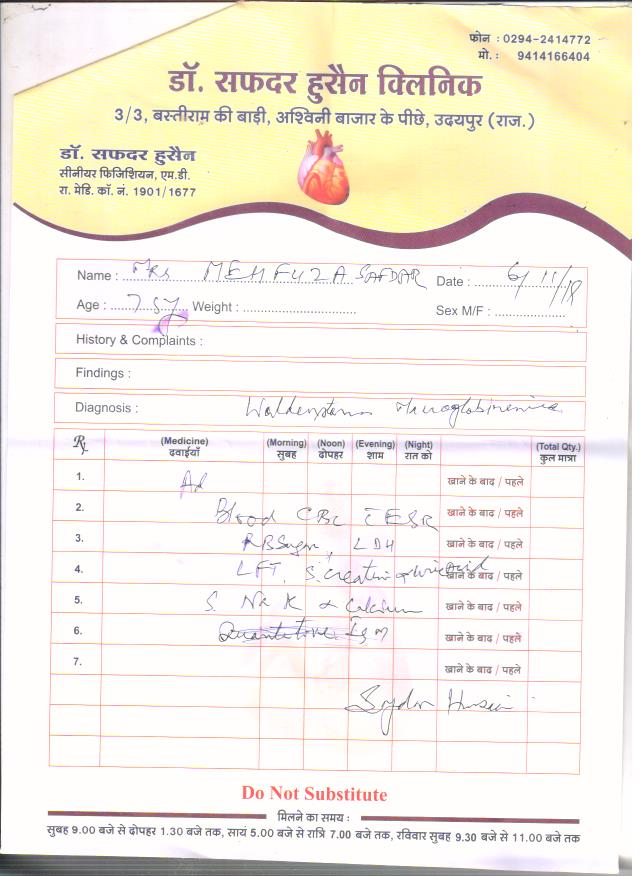 फोन : 0294-2414772
मो. : 9414166404
डॉ. सफदर हुसैन क्लिनिक
3/3, बस्तीराम की बाड़ी, अश्विनी बाजार के पीछे, उदयपुर (राज.)
डॉ. सफदर हुसैन
सीनीयर फिजिशियन, एम.डी.
रा. मेडि. कॉ. नं. 1901/1677
Name : Mrs MEHFUZA SAFDAR Date : 6/11/18
Age : 75y Weight : Sex M/F :
History & Complaints :
Findings :
Diagnosis :
Rx (Medicine) (Morning) (Noon) (Evening) (Night) (Total Qty.)
दवाईयाँ सुबह दोपहर शाम रात को कुल मात्रा
1. Ad खाने के बाद / पहले
2. Blood CBC ESR खाने के बाद / पहले
3. RBSugar, LDH खाने के बाद / पहले
4. LFT, S. creatin & Uric Acid खाने के बाद / पहले
5. S. Na K & Calcium खाने के बाद / पहले
6. Quantative IgM खाने के बाद / पहले
7. खाने के बाद / पहले
Safdar Husain
Do Not Substitute
मिलने का समय :
सुबह 9.00 बजे से दोपहर 1.30 बजे तक, सायं 5.00 बजे से रात्रि 7.00 बजे तक, रविवार सुबह 9.30 बजे से 11.00 बजे तक